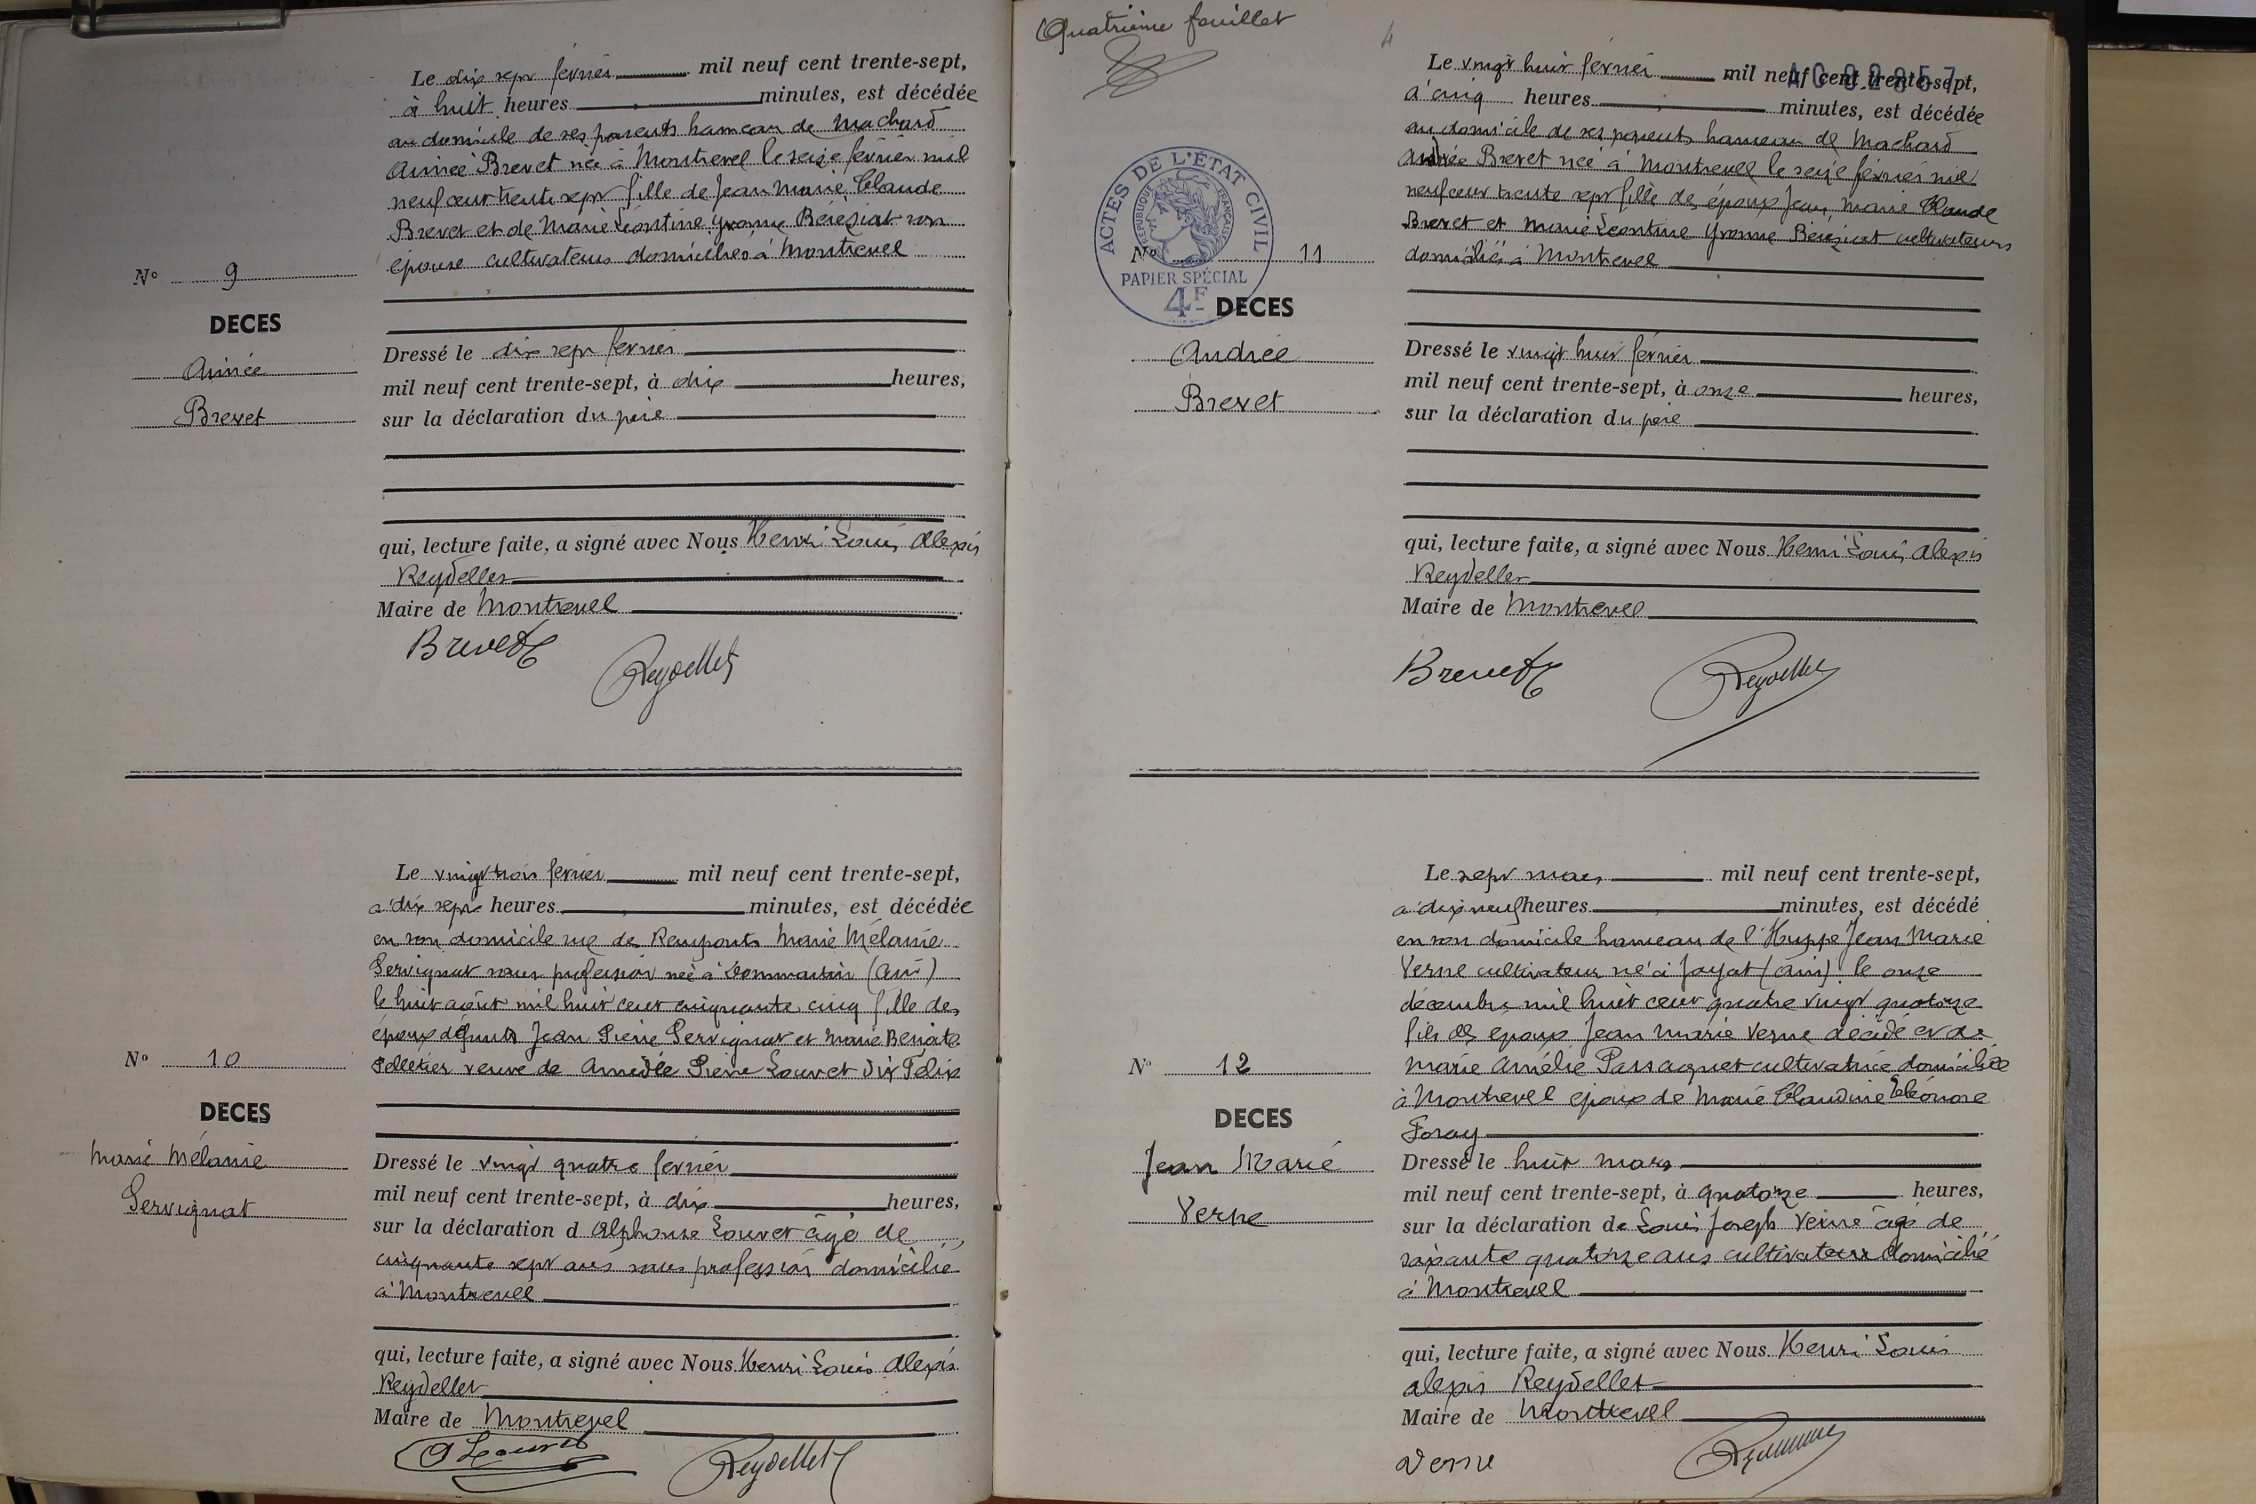 Le dix sept février mil neuf cent trente-sept,
à huit heures minutes, est décédée
au domicile de ses parents hameau de Machard
Aimée Brevet née à Montrevel le seize février mil
neuf cent trente sept fille de Jean Marie Claude
Brevet et de Marie Léontine Yvonne Béréziat son
épouse cultivateurs domiciliés à Montrevel
N° 9
DECES
Aimée
Brevet
Dressé le dix sept février
mil neuf cent trente-sept, à dix heures,
sur la déclaration du père
qui, lecture faite, a signé avec Nous Henri Louis Alexis
Reydellet
Maire de Montrevel
Brevet
Reydellet
Le vingt trois février mil neuf cent trente-sept,
à dix sept heures minutes, est décédée
en son domicile rue des Remparts Marie Mélanie
Servignat sans profession née à (Ain)
le huit août mil huit cent cinquante cinq fille des
époux défunts Jean Pierre Servignat et Marie Benoite
Pelletier veuve de Amédée Pierre Louvet dit Félix
N° 10
DECES
Marie Mélanie
Servignat
Dressé le vingt quatre février
mil neuf cent trente-sept, à dix heures,
sur la déclaration d Alphonse Louvet âgé de
cinquante sept ans sans profession domicilié
à Montrevel
qui, lecture faite, a signé avec Nous Henri Louis Alexis
Reydellet
Maire de Montrevel
Louvet
Reydellet
Quatrième feuillet
4
Le vingt huit février mil neuf cent trente-sept,
à cinq heures minutes, est décédée
au domicile de ses parents hameau de Machard
Andrée Brevet née à Montrevel le seize février mil
neuf cent trente sept fille des époux Jean Marie Claude
Brevet et Marie Léontine Yvonne Béréziat cultivateurs
domiciliés à Montrevel
ACTES DE L'ÉTAT CIVIL
RÉPUBLIQUE FRANÇAISE
PAPIER SPÉCIAL
4F
N° 11
DECES
Andrée
Brevet
Dressé le vingt huit février
mil neuf cent trente-sept, à onze heures,
sur la déclaration du père
qui, lecture faite, a signé avec Nous Henri Louis Alexis
Reydellet
Maire de Montrevel
Brevet
Reydellet
Le sept mars mil neuf cent trente-sept,
à dix neuf heures minutes, est décédé
en son domicile hameau de l'Huppe Jean Marie
Verne cultivateur né à Jayat (Ain) le onze
décembre mil huit cent quatre vingt quatorze
fils des époux Jean Marie Verne décédé et de
Marie Amélie Passaquet cultivatrice domiciliée
à Montrevel époux de Marie Claudine Eléonore
Foray
N° 12
DECES
Jean Marie
Verne
Dressé le huit mars
mil neuf cent trente-sept, à quatorze heures,
sur la déclaration de Louis Joseph Verne âgé de
soixante quatorze ans cultivateur domicilié
à Montrevel
qui, lecture faite, a signé avec Nous Henri Louis
Alexis Reydellet
Maire de Montrevel
Verne
Reydellet